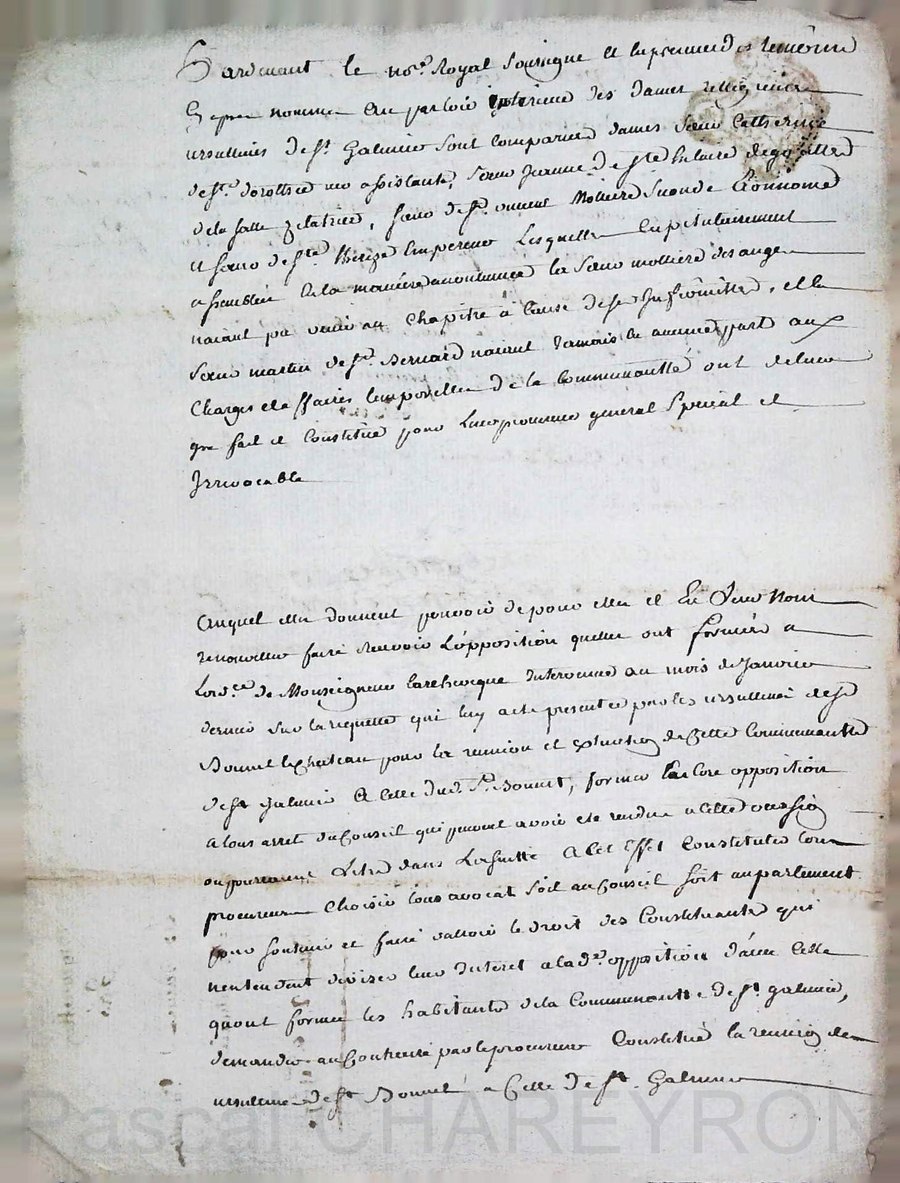 Pardevant le no.re Royal Soussigne et En presence des temoins
Cy apres nommes au parloir interieur des dames relligieuses
ursullines de St Galmier sont comparues dames sœur Catherine
de Ste dorothée assistante, sœur Jeanne de Ste hilaire
de la salle zelatrice, sœur de St vincent
et sœur de Ste Therese Lempereur Lesquelles Capitulairement
assemblées a la maniere accoutumée la sœur molliere des anges
naiant pu venir au Chapitre à Cause de ses Infirmittés, et la
sœur martin de St Bernard naiant Jamais eu aucune part aux
Charges et affaires temporelles de la Communautté ont de leur
gre fait et Constitué pour Leur procureur general Special et
Irrevocable
Auquel elles donnent pouvoir de pour elles et En Leur Nom
renouveller L'opposition quelles ont formée a
Lord.ce de Monseigneur Larcheveque Intervenue au mois de Janvier
dernier sur la requette qui luy a ete presentée par les ursullines de St
Bonnet le Chateau pour la reunion et extinction de Cette Communautté
de St Galmier a Celle dud. St Bonnet, former Encore opposition
a tous arret du Conseil qui peuvent avoir ete rendus a Cette occasion
ou pourroient Letre dans La suitte a Cet effet Constituer tous
procureurs Choisir tous avocat soit au Conseil soit au parlement
pour soutenir et faire valloir le droit des Constituantes qui
nentendent diviser leur Interet a lad.e opposition davec Celle
quont formée les habitants de la Communautté de St galmier,
demander au Contraire par le procureur Constitué la reunion des
ursullines de St Bonnet a Celle de St Galmier
Pascal CHAREYRON